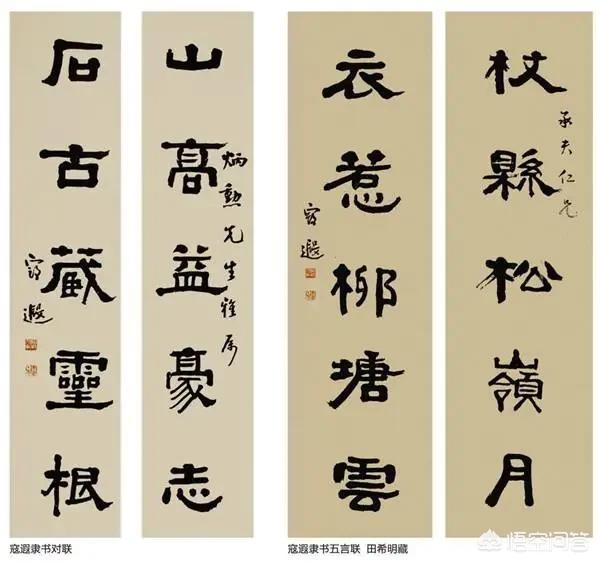 山高益豪志
炳勳先生雅属
石古藏靈根
寇遐
杖縣松嶺月
承夫仁兄
衣惹柳塘雲
寇遐
寇遐隶书对联
寇遐隶书五言联 田希明藏
悟空问答